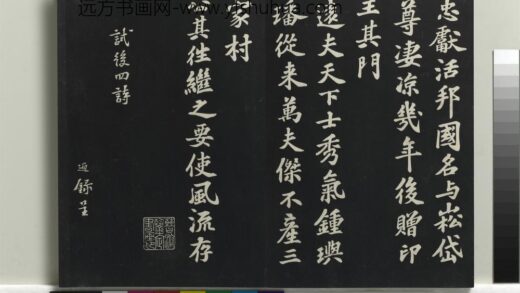 远方书画网-www.yfshuhua.com
忠獻活邦國名与崧岱
尊淒涼幾年後贈印
其門
遠夫天下士秀氣鍾璵
璠從来萬夫傑不產三
家村
其往繼之要使風流存
試後四詩
録呈